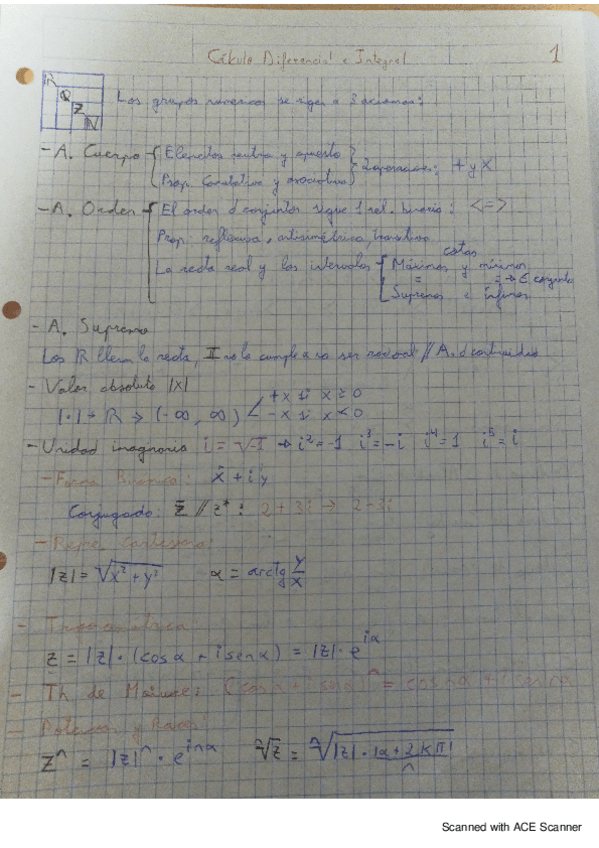 Cálculo Diferencial e Integral
1
R
Q
Z
N
Los grupos numericos se rigen a 3 axiomas:
- A. Cuerpo
Elementos neutro y opuesto
Prop. Conmutativa y asociativa
2 operaciones: + y x
- A. Orden
El orden d conjuntos sigue 1 rel. binaria: <=>
Prop: reflexiva, antisimétrica, transitiva
La recta real y los intervalos
cotas
Máximos y mínimos
= = → ∈ conjunto
Supremos e ínfimos
- A. Supremo
Los R llenan la recta, II no lo cumple a no ser racional // A. d continuidad
- Valor absoluto |x|
+x si x ≥ 0
|·| → R → (-∞, ∞)
-x si x < 0
- Unidad imaginaria i = √-1 → i² = -1 i³ = -i i⁴ = 1 i⁵ = i
- Forma Binómica: x + iy
Conjugado: z̄ // z* : 2 + 3i → 2 - 3i
- Repre. Cartesiana:
|z| = √x² + y² α = arctg y/x
- Trigonométrica
z = |z| · (cos α + i sen α) = |z| · e^iα
- Th. de Moivre: (cos α + i sen α)^n = cos nα + i sen nα
- Potencias y Raices
z^n = |z|^n · e^inα ⁿ√z = ⁿ√|z| · (α + 2kπ)/n
Scanned with ACE Scanner